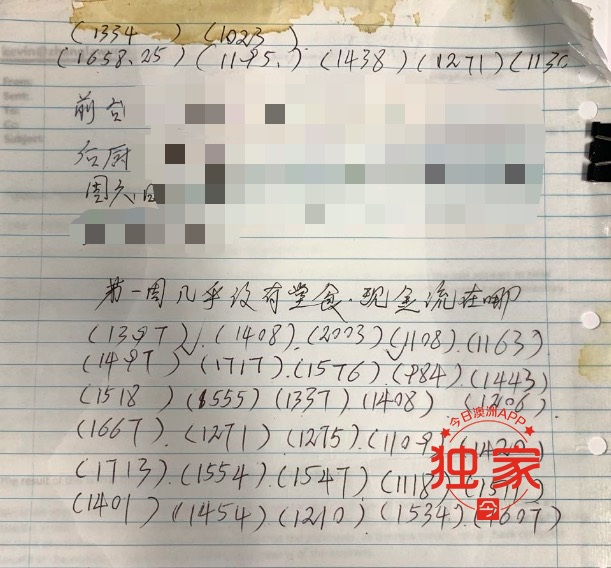 (1334) (1023)
(1658.25) (1195.) (1438) (1271) (1130
前台
后厨
周六日
第一周几乎没有堂食.现金流在哪
(1397). (1408). (2003) (1108). (1163)
(1497) (1717). (1576). (984). (1443)
(1518) (1555) (1337) (1408)
(1667). (1271) (1275).
(1713). (1554). (1547) (1118)
(1401) (1454) (1210) (1534). (1607)
今日澳洲APP
独家
今
From:
Sent:
Subject: